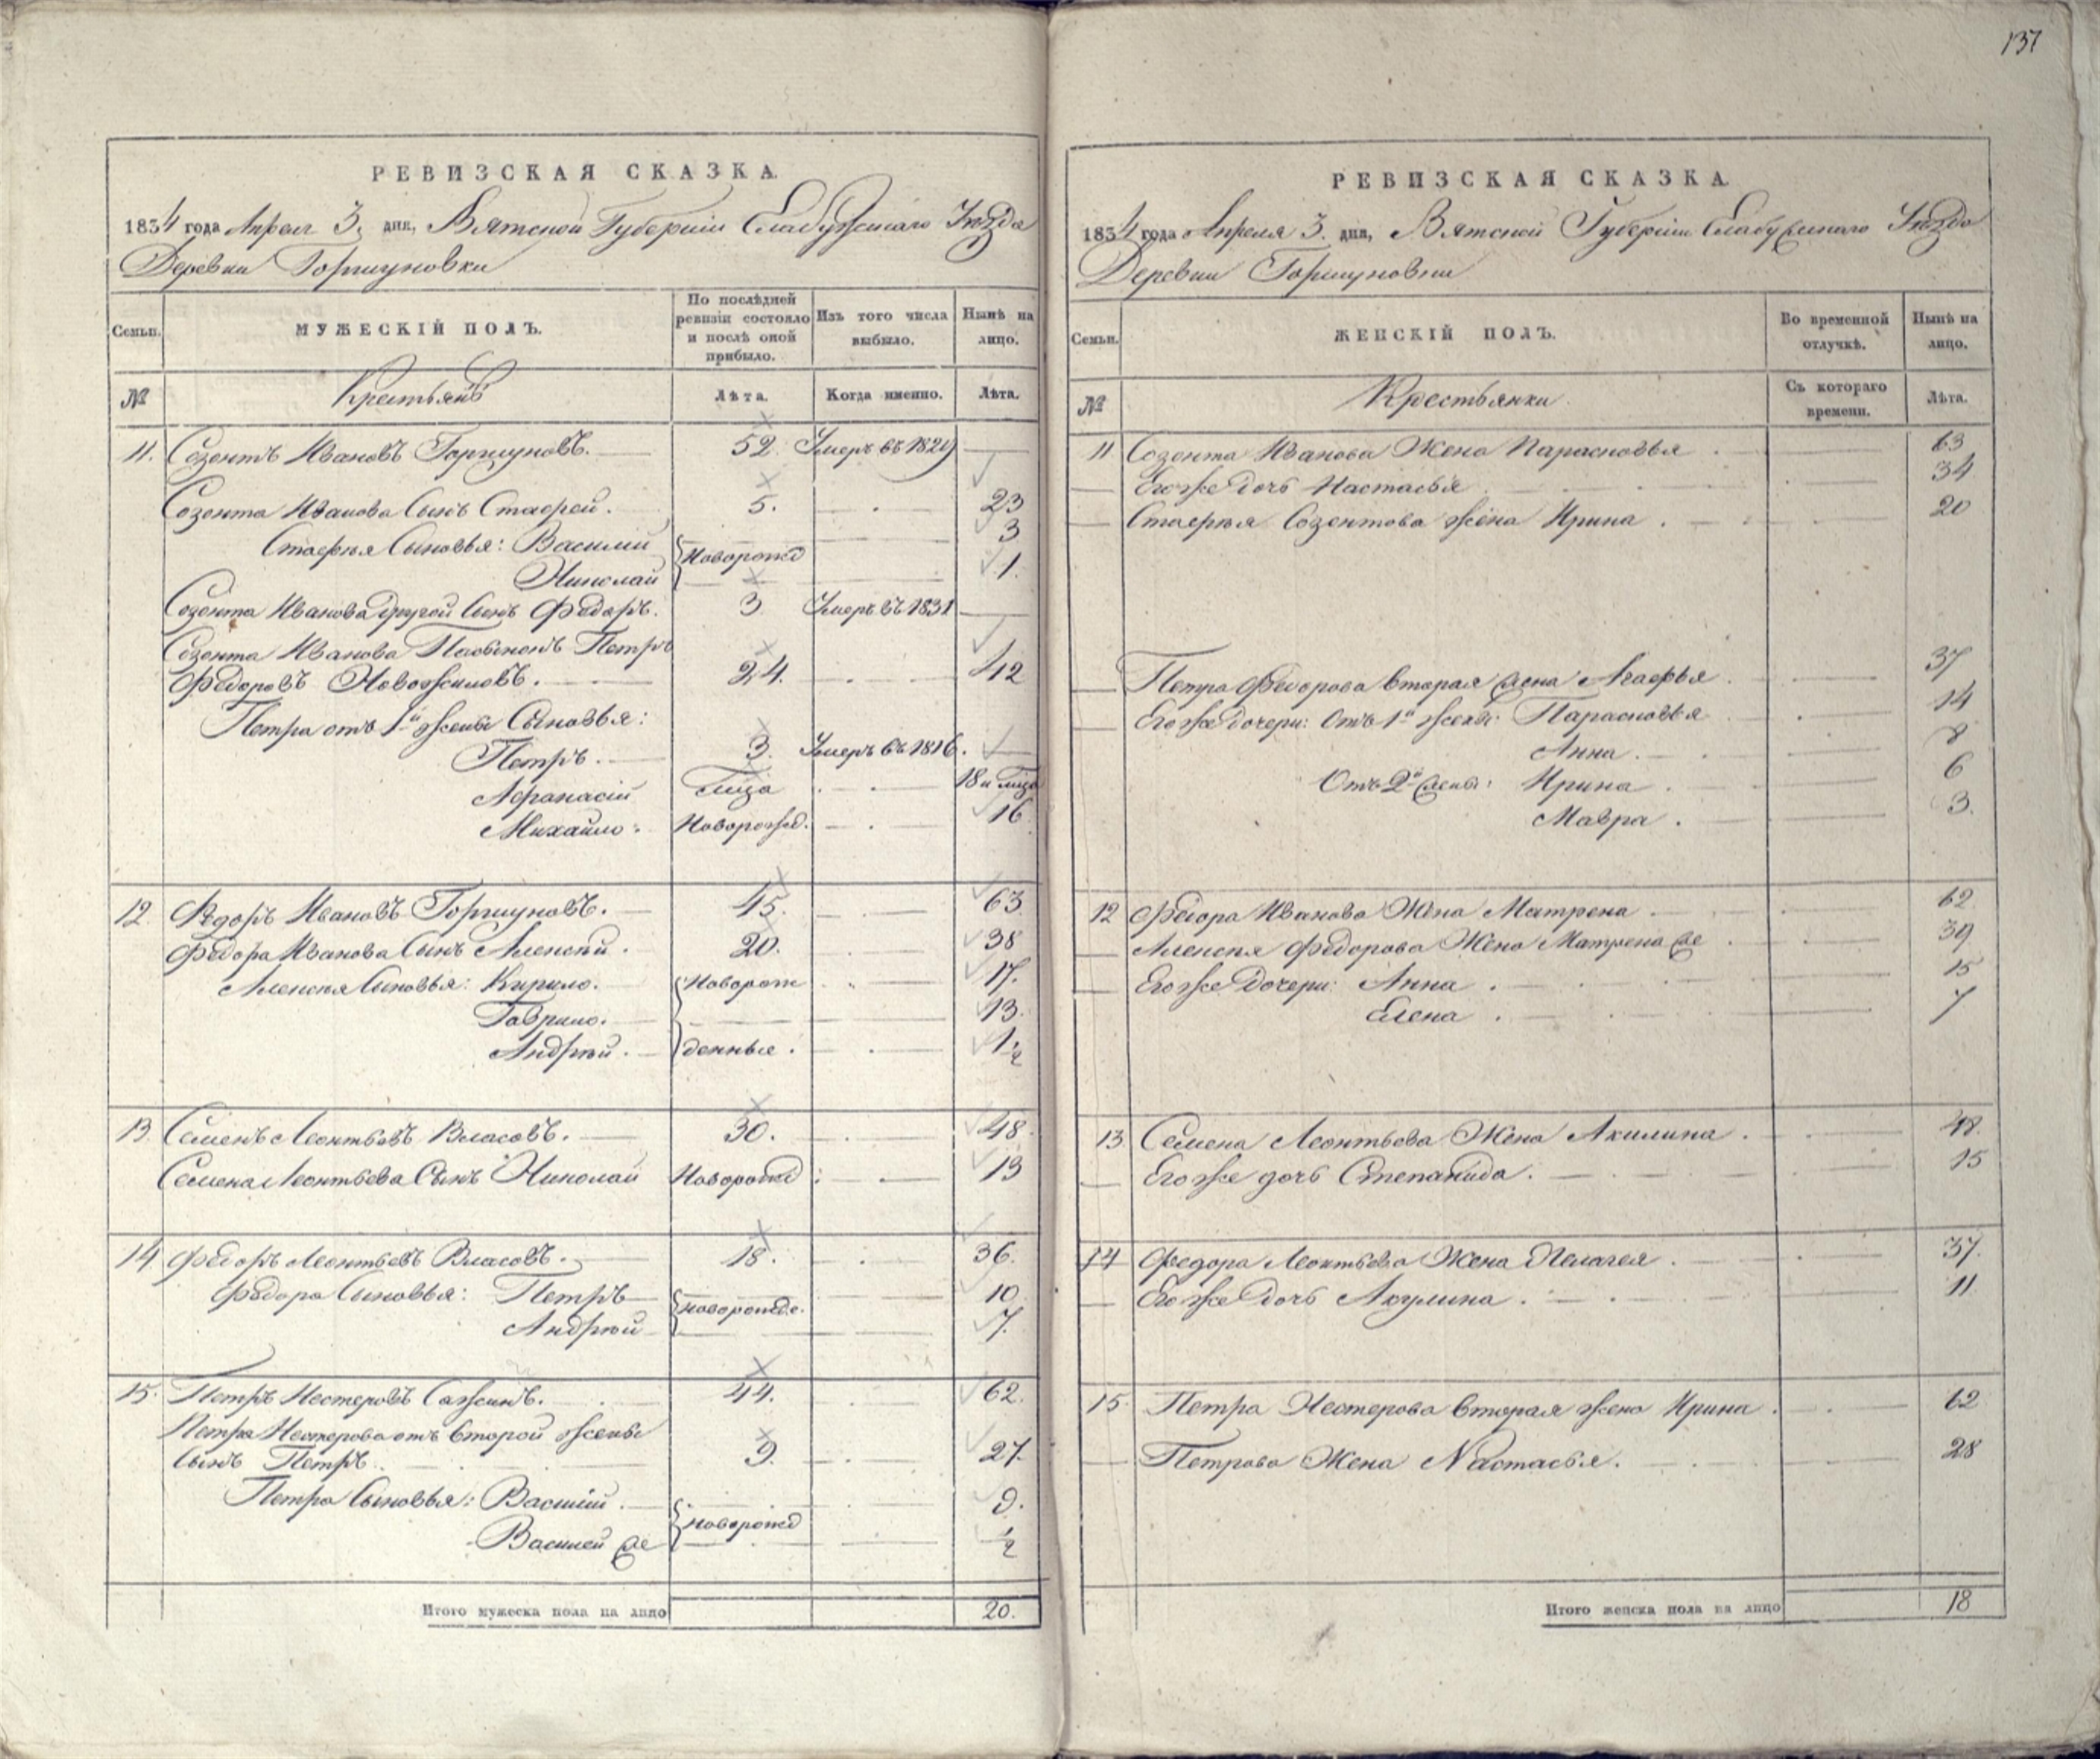 137
РЕВИЗСКАЯ СКАЗКА.
1834 года Апреля 3. дня, Вятской Губерніи Елабужскаго Уѣзда
Деревни Горшуновки
Семьи. МУЖЕСКІЙ ПОЛЪ. По послѣдней ревизіи состояло и послѣ оной прибыло. Изъ того числа выбыло. Нынѣ на лицо.
№ Крестьянъ Лѣта. Когда именно. Лѣта.
11. Созонтъ Ивановъ Горшуновъ. 52 Умеръ въ 1829
Созонта Иванова Сынъ Стафей. 5. 23
Стафея Сыновья: Василий Новорожд 3
Николай 1.
Созонта Иванова другой Сынъ Федоръ. 3 Умеръ въ 1831
Созонта Иванова Пасынокъ Петръ
Федоровъ Новожиловъ. 24. 42
Петра отъ 1й жены Сыновья:
Петръ. 3. Умеръ въ 1816.
Афанасій 18 и
Михайло: Новорожд. 16.
12. Федоръ Ивановъ Горшуновъ. 45. 63
Федора Иванова Сынъ Алексѣй. 20. 38
Алексея Сыновья: Кирило. Новорож 17.
Гаврило. 13.
Андрѣй. денные. 1/2
13. Семенъ Леонтьевъ Власовъ. 30. 48.
Семена Леонтьева Сынъ Николай Новорожд 13
14 Федоръ Леонтьевъ Власовъ. 18. 36.
Федора Сыновья: Петръ новорожде. 10
Андрѣй 7.
15. Петръ Нестеровъ Сажинъ. 44. 62.
Петра Нестерова отъ второй жены
Сынъ Петръ. 9. 27.
Петра Сыновья: Василій. новорожд 9.
Василей же 1/2
Итого мужеска пола на лицо 20.
РЕВИЗСКАЯ СКАЗКА.
1834 года Апреля 3. дня, Вятской Губерніи Елабужскаго Уѣзда
Деревни Горшуновки
Семьи. ЖЕНСКІЙ ПОЛЪ. Во временной отлучкѣ. Нынѣ на лицо.
№ Крестьянки. Съ котораго времени. Лѣта.
11 Созонта Иванова Жена Парасковья 63
Его же дочь Настасья 34
Стафея Созонтова жена Ирина. 20
Петра Федорова вторая жена Агафья 37
Его же дочери: Отъ 1й жены: Парасковья 14
Анна. 8
Отъ 2й жены: Ирина. 6
Мавра. 3.
12 Федора Иванова Жена Матрена. 62
Алексея Федорова Жена Матрена же 39
Его же дочери: Анна. 15
Елена. 7
13. Семена Леонтьева Жена Акилина. 48.
Его же дочь Степанида. 15
14 Федора Леонтьева Жена Пелагея. 37.
Его же дочь Акулина. 11
15. Петра Нестерова вторая жена Ирина. 62
Петрова Жена Настасья. 28
Итого женска пола на лицо 18